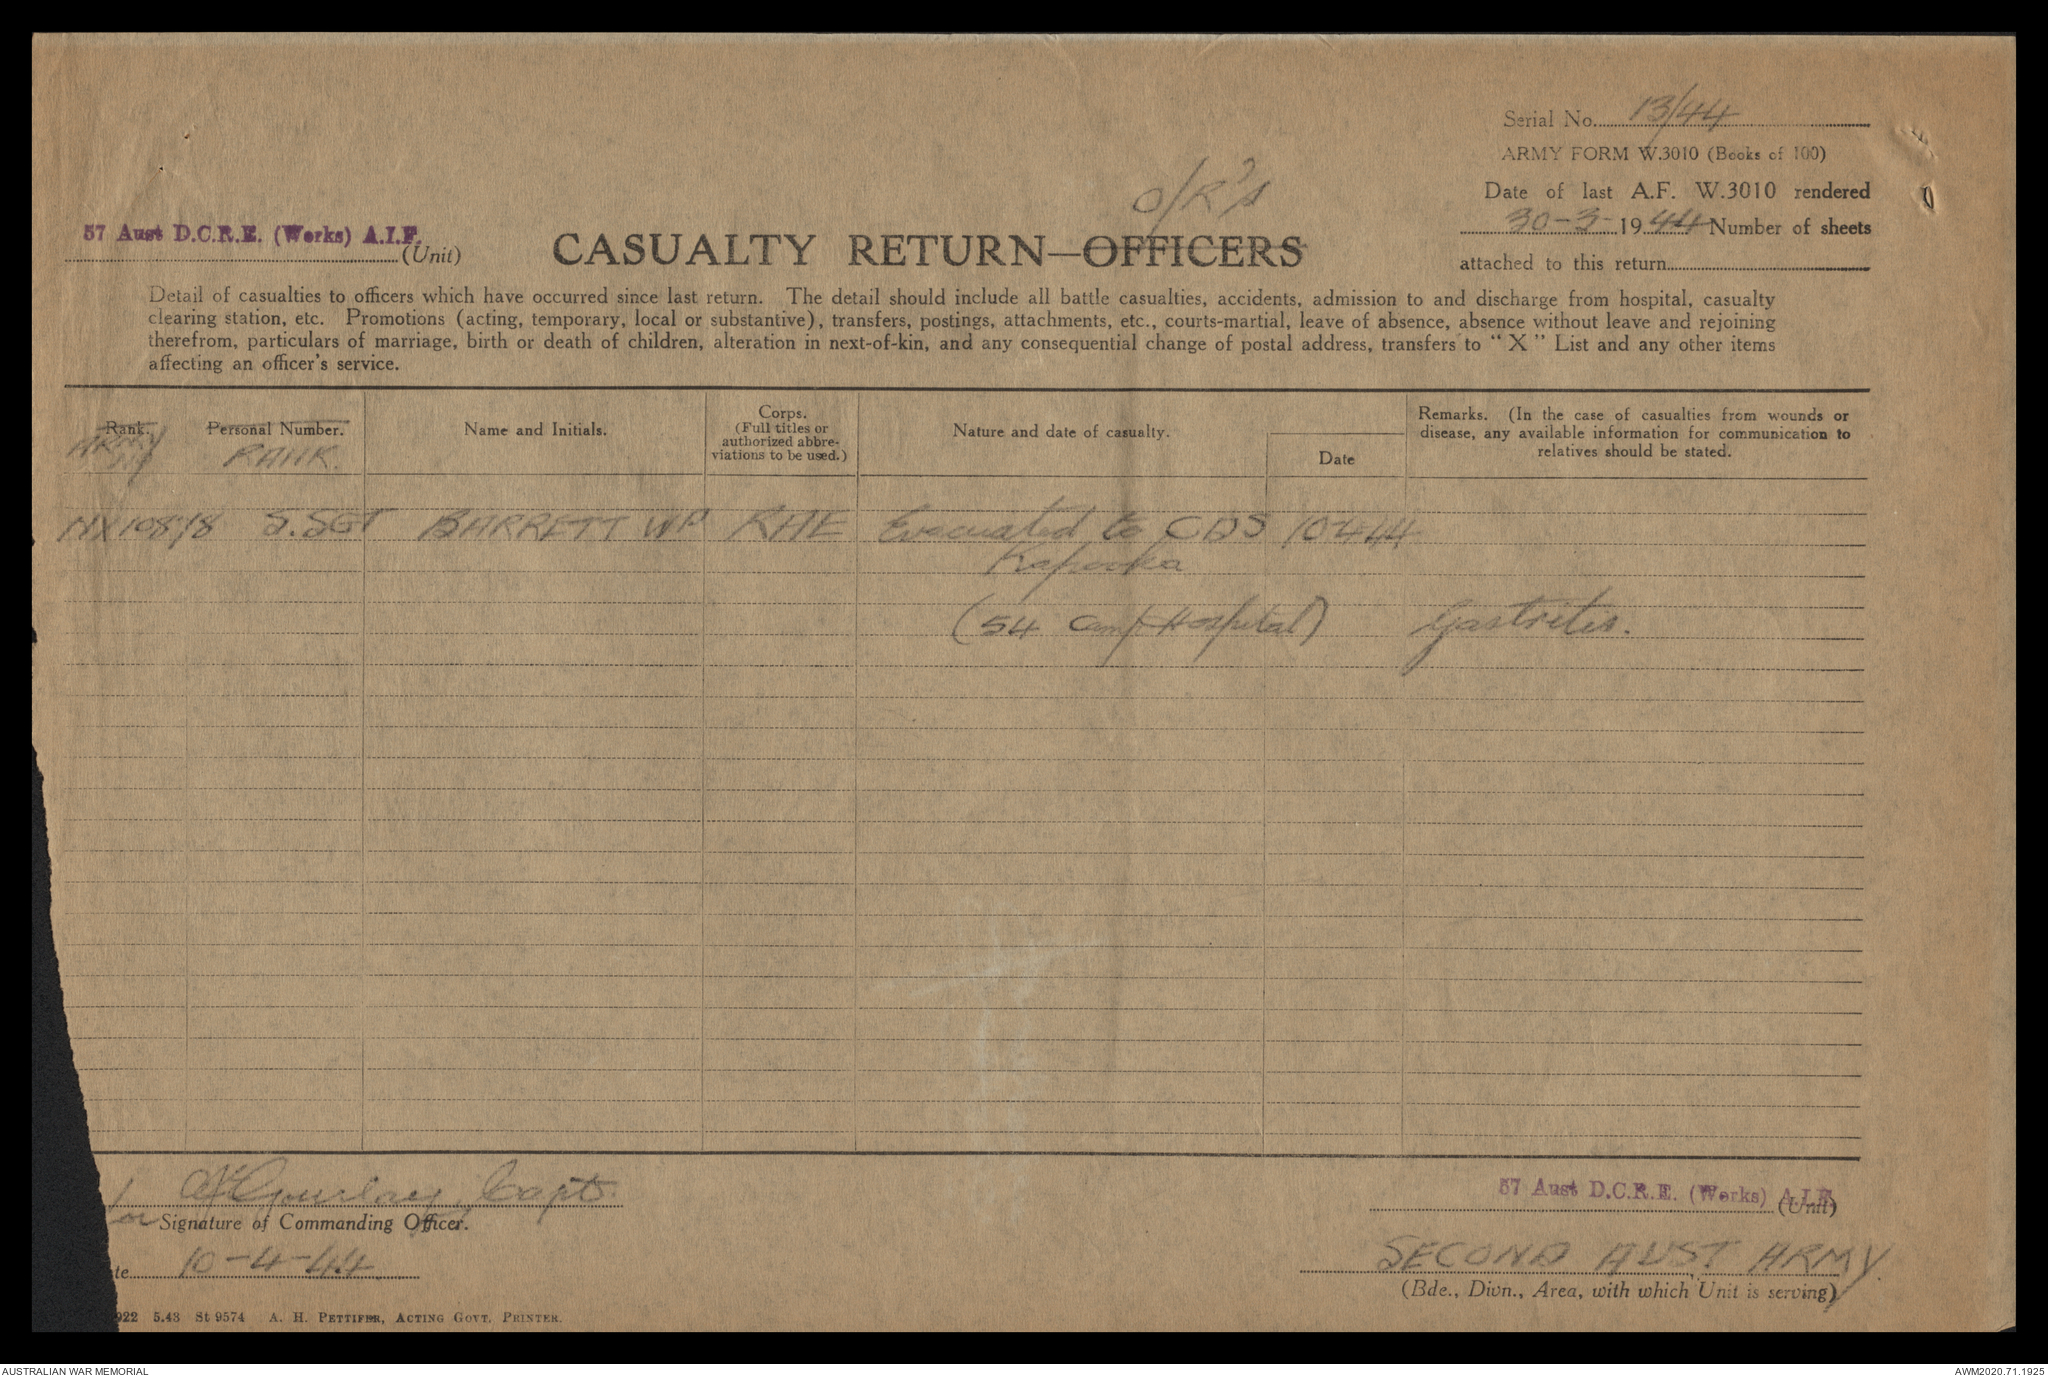 Serial No. 13/44
ARMY FORM W.3010 (Books of 100)
Date of last A.F. W.3010 rendered
30-3-1944 Number of sheets
attached to this return
57 Aust D.C.R.E. (Works) A.I.F.
(Unit)
O/R's
CASUALTY RETURN—OFFICERS
Detail of casualties to officers which have occurred since last return. The detail should include all battle casualties, accidents, admission to and discharge from hospital, casualty
clearing station, etc. Promotions (acting, temporary, local or substantive), transfers, postings, attachments, etc., courts-martial, leave of absence, absence without leave and rejoining
therefrom, particulars of marriage, birth or death of children, alteration in next-of-kin, and any consequential change of postal address, transfers to “ X ” List and any other items
affecting an officer's service.
Rank.
ARMY
No
Personal Number.
RANK.
Name and Initials.
Corps.
(Full titles or
authorized abbre-
viations to be used.)
Nature and date of casualty.
Date
Remarks. (In the case of casualties from wounds or
disease, any available information for communication to
relatives should be stated.
NX10878 S.SGT BARRETT WP RAE Evacuated to CDS 10444
Kapooka
(54 Camp Hospital) Gastritis.
Gourlay Capt.
or Signature of Commanding Officer.
te 10-4-44
922 5.43 St 9574 A. H. PETTIFER, ACTING GOVT. PRINTER.
57 Aust D.C.R.E. (Works) A.I.F.
(Unit)
SECOND AUST ARMY.
(Bde., Divn., Area, with which Unit is serving)
AUSTRALIAN WAR MEMORIAL
AWM2020.71.1925